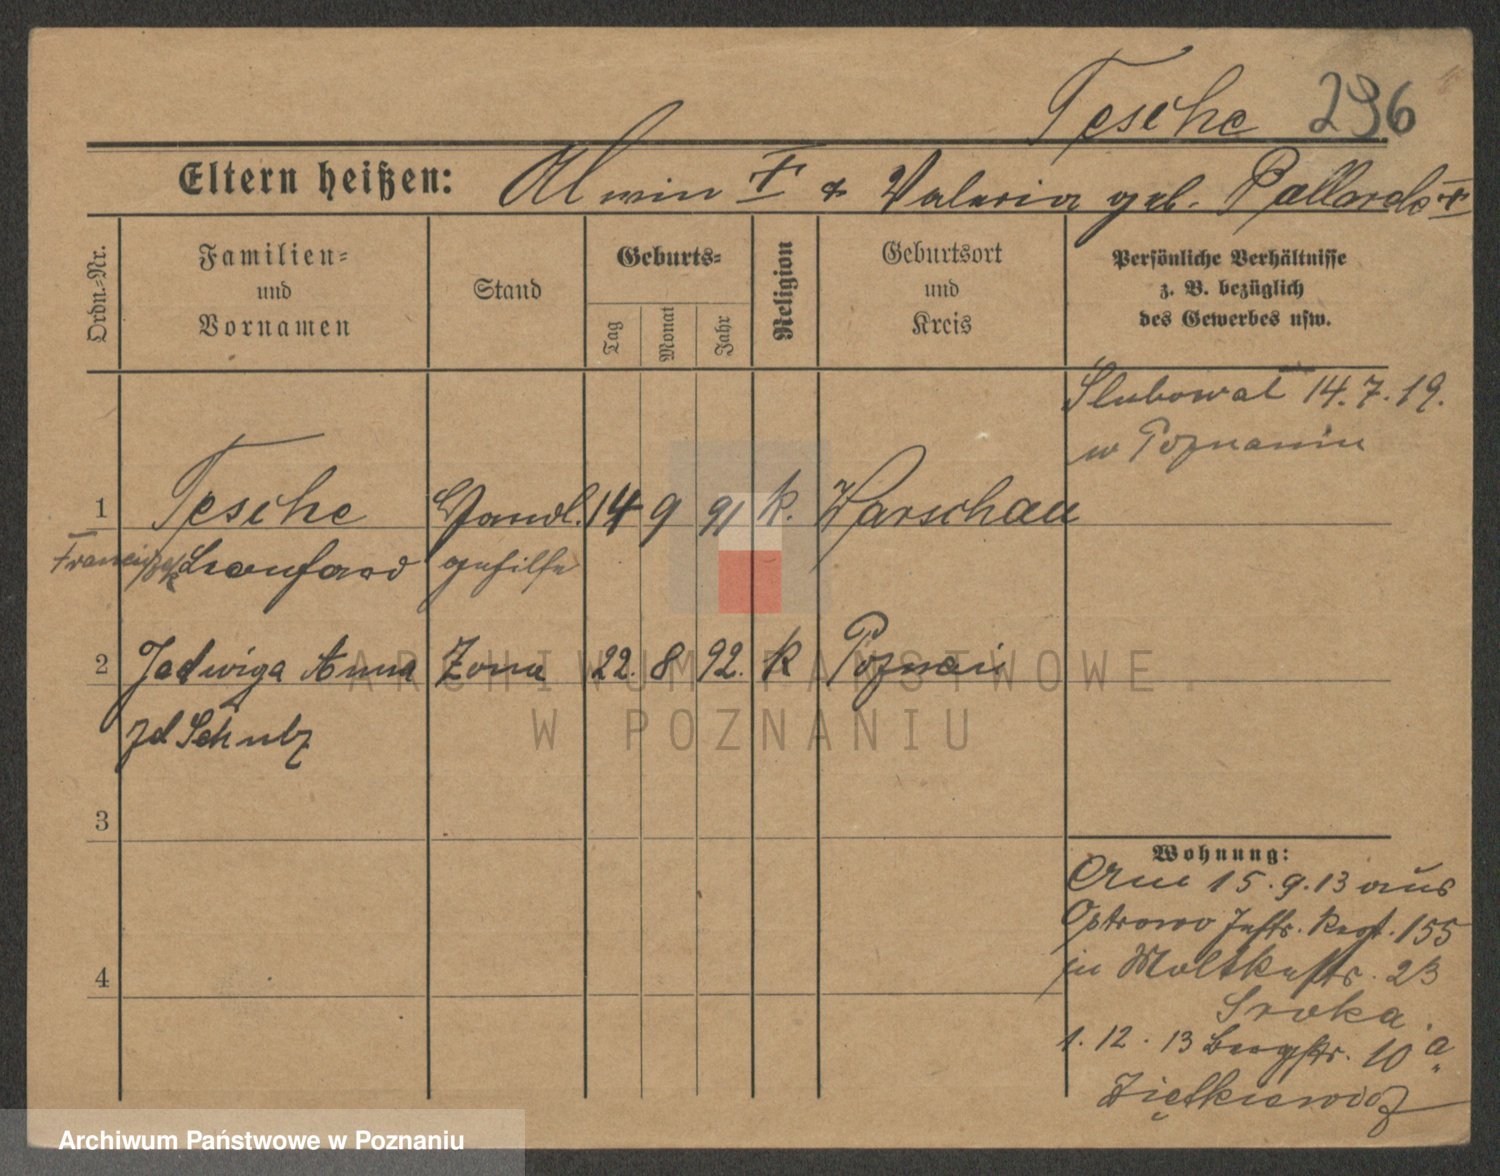 Tesche 296
Eltern heißen: Alwin † & Valeria geb. †
Ordn.-Nr.
Familien- und Vornamen
Stand
Geburts-
Tag
Monat
Jahr
Religion
Geburtsort und Kreis
Persönliche Verhältnisse
z. B. bezüglich
des Gewerbes usw.
Slubowal 14.7.19.
w Poznaniu
1 Tesche Handl. 14 9 91 k. Warschau
Franciszek gehilfe
2 Jadwiga Anna Żona 22. 8 92. k Poznań
zd Schulz
3
4
Wohnung:
Am 15.9.13 aus
Ostrowo Inftr. Regt. 155
in Moltkestr. 23
Sroka.
1.12.13 Bergstr. 10 a
Ziętkiewicz
ARCHIWUM PAŃSTWOWE
W POZNANIU
Archiwum Państwowe w Poznaniu